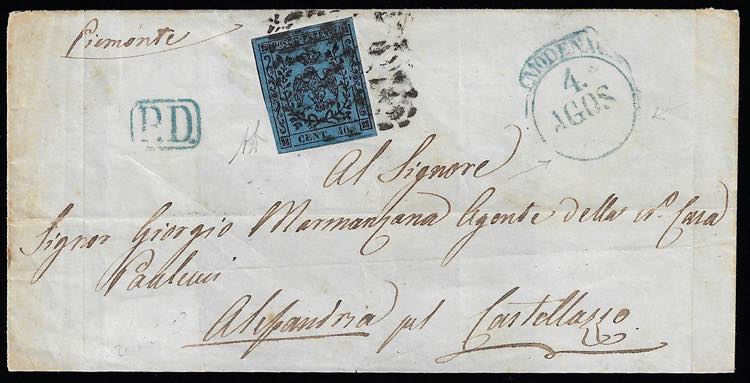 Piemonte
POSTE ESTENSI
CENT. 40
MODENA
4.
AGOS
P.D.
Al Signore
Signor Giorgio Marmanzana Agente della Casa
Alessandria pel Castellazzo